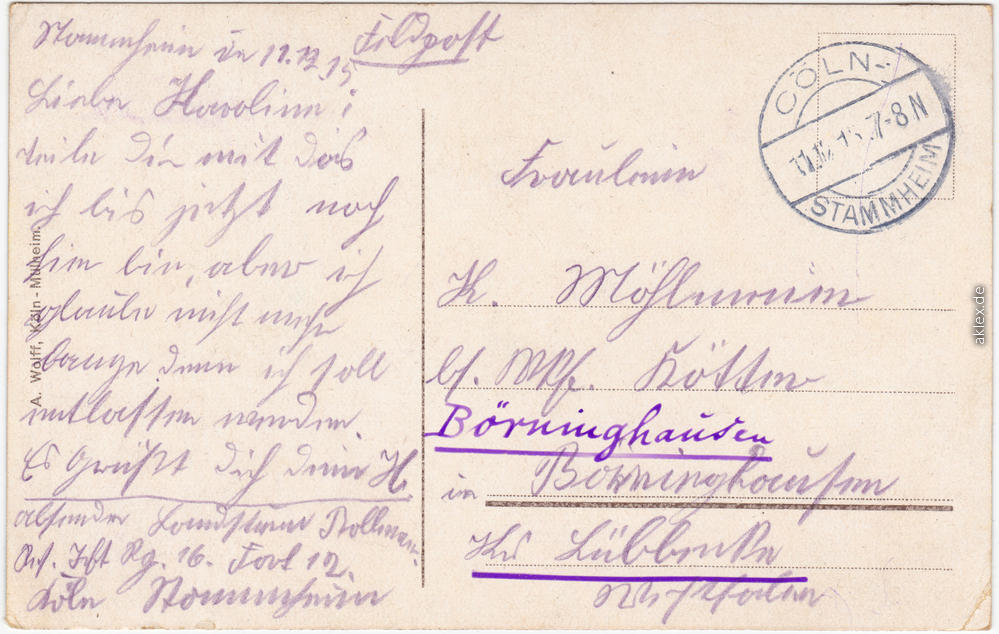 Stammheim den 11.12.15
Feldpost
Liebe Karoline!
teile dir mit das
ich bis jetzt noch
hier bin, aber ich
glaube nicht mehr
lange denn ich soll
entlassen werden.
Es grüßt dich dein H.
absender Landsturm
Res. Inft Rg. 16.
Köln Stammheim
A. Wolff, Köln-Mülheim.
CÖLN-
11.12.15. 7-8 N
STAMMHEIM
Fräulein
K. Möhlmann
bs. Köster
Börninghausen
in Börninghausen
Krs Lübbecke
Westfalen
aklex.de